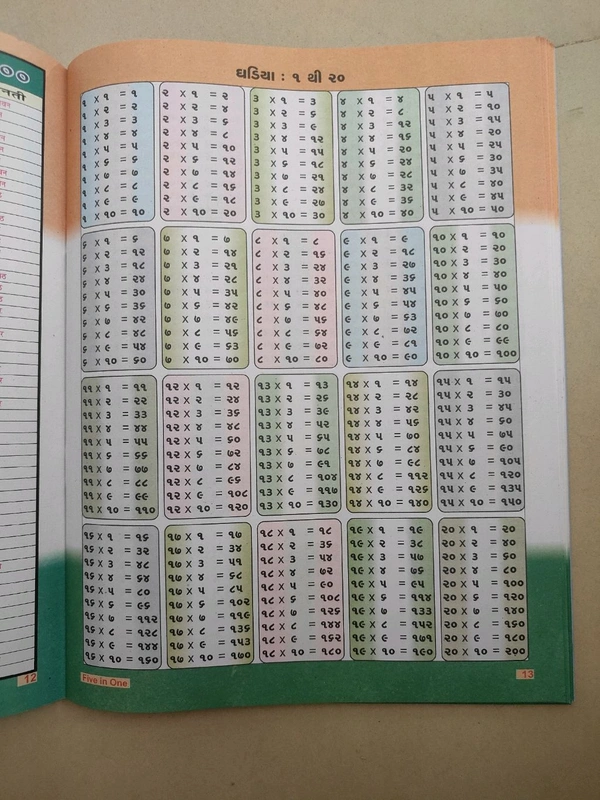 ઘડિયા : ૧ થી ૨૦
૧ X ૧ = ૧
૧ X ૨ = ૨
૧ X ૩ = ૩
૧ X ૪ = ૪
૧ X ૫ = ૫
૧ X ૬ = ૬
૧ X ૭ = ૭
૧ X ૮ = ૮
૧ X ૯ = ૯
૧ X ૧૦ = ૧૦
૨ X ૧ = ૨
૨ X ૨ = ૪
૨ X ૩ = ૬
૨ X ૪ = ૮
૨ X ૫ = ૧૦
૨ X ૬ = ૧૨
૨ X ૭ = ૧૪
૨ X ૮ = ૧૬
૨ X ૯ = ૧૮
૨ X ૧૦ = ૨૦
૩ X ૧ = ૩
૩ X ૨ = ૬
૩ X ૩ = ૯
૩ X ૪ = ૧૨
૩ X ૫ = ૧૫
૩ X ૬ = ૧૮
૩ X ૭ = ૨૧
૩ X ૮ = ૨૪
૩ X ૯ = ૨૭
૩ X ૧૦ = ૩૦
૪ X ૧ = ૪
૪ X ૨ = ૮
૪ X ૩ = ૧૨
૪ X ૪ = ૧૬
૪ X ૫ = ૨૦
૪ X ૬ = ૨૪
૪ X ૭ = ૨૮
૪ X ૮ = ૩૨
૪ X ૯ = ૩૬
૪ X ૧૦ = ૪૦
૫ X ૧ = ૫
૫ X ૨ = ૧૦
૫ X ૩ = ૧૫
૫ X ૪ = ૨૦
૫ X ૫ = ૨૫
૫ X ૬ = ૩૦
૫ X ૭ = ૩૫
૫ X ૮ = ૪૦
૫ X ૯ = ૪૫
૫ X ૧૦ = ૫૦
૬ X ૧ = ૬
૬ X ૨ = ૧૨
૬ X ૩ = ૧૮
૬ X ૪ = ૨૪
૬ X ૫ = ૩૦
૬ X ૬ = ૩૬
૬ X ૭ = ૪૨
૬ X ૮ = ૪૮
૬ X ૯ = ૫૪
૬ X ૧૦ = ૬૦
૭ X ૧ = ૭
૭ X ૨ = ૧૪
૭ X ૩ = ૨૧
૭ X ૪ = ૨૮
૭ X ૫ = ૩૫
૭ X ૬ = ૪૨
૭ X ૭ = ૪૯
૭ X ૮ = ૫૬
૭ X ૯ = ૬૩
૭ X ૧૦ = ૭૦
૮ X ૧ = ૮
૮ X ૨ = ૧૬
૮ X ૩ = ૨૪
૮ X ૪ = ૩૨
૮ X ૫ = ૪૦
૮ X ૬ = ૪૮
૮ X ૭ = ૫૬
૮ X ૮ = ૬૪
૮ X ૯ = ૭૨
૮ X ૧૦ = ૮૦
૯ X ૧ = ૯
૯ X ૨ = ૧૮
૯ X ૩ = ૨૭
૯ X ૪ = ૩૬
૯ X ૫ = ૪૫
૯ X ૬ = ૫૪
૯ X ૭ = ૬૩
૯ X ૮ = ૭૨
૯ X ૯ = ૮૧
૯ X ૧૦ = ૯૦
૧૦ X ૧ = ૧૦
૧૦ X ૨ = ૨૦
૧૦ X ૩ = ૩૦
૧૦ X ૪ = ૪૦
૧૦ X ૫ = ૫૦
૧૦ X ૬ = ૬૦
૧૦ X ૭ = ૭૦
૧૦ X ૮ = ૮૦
૧૦ X ૯ = ૯૯
૧૦ X ૧૦ = ૧૦૦
૧૧ X ૧ = ૧૧
૧૧ X ૨ = ૨૨
૧૧ X ૩ = ૩૩
૧૧ X ૪ = ૪૪
૧૧ X ૫ = ૫૫
૧૧ X ૬ = ૬૬
૧૧ X ૭ = ૭૭
૧૧ X ૮ = ૮૮
૧૧ X ૯ = ૯૯
૧૧ X ૧૦ = ૧૧૦
૧૨ X ૧ = ૧૨
૧૨ X ૨ = ૨૪
૧૨ X ૩ = ૩૬
૧૨ X ૪ = ૪૮
૧૨ X ૫ = ૬૦
૧૨ X ૬ = ૭૨
૧૨ X ૭ = ૮૪
૧૨ X ૮ = ૯૬
૧૨ X ૯ = ૧૦૮
૧૨ X ૧૦ = ૧૨૦
૧૩ X ૧ = ૧૩
૧૩ X ૨ = ૨૬
૧૩ X ૩ = ૩૯
૧૩ X ૪ = ૫૨
૧૩ X ૫ = ૬૫
૧૩ X ૬ = ૭૮
૧૩ X ૭ = ૯૧
૧૩ X ૮ = ૧૦૪
૧૩ X ૯ = ૧૧૭
૧૩ X ૧૦ = ૧૩૦
૧૪ X ૧ = ૧૪
૧૪ X ૨ = ૨૮
૧૪ X ૩ = ૪૨
૧૪ X ૪ = ૫૬
૧૪ X ૫ = ૭૦
૧૪ X ૬ = ૮૪
૧૪ X ૭ = ૯૮
૧૪ X ૮ = ૧૧૨
૧૪ X ૯ = ૧૨૬
૧૪ X ૧૦ = ૧૪૦
૧૫ X ૧ = ૧૫
૧૫ X ૨ = ૩૦
૧૫ X ૩ = ૪૫
૧૫ X ૪ = ૬૦
૧૫ X ૫ = ૭૫
૧૫ X ૬ = ૯૦
૧૫ X ૭ = ૧૦૫
૧૫ X ૮ = ૧૨૦
૧૫ X ૯ = ૧૩૫
૧૫ X ૧૦ = ૧૫૦
૧૬ X ૧ = ૧૬
૧૬ X ૨ = ૩૨
૧૬ X ૩ = ૪૮
૧૬ X ૪ = ૬૪
૧૬ X ૫ = ૮૦
૧૬ X ૬ = ૯૬
૧૬ X ૭ = ૧૧૨
૧૬ X ૮ = ૧૨૮
૧૬ X ૯ = ૧૪૪
૧૬ X ૧૦ = ૧૬૦
૧૭ X ૧ = ૧૭
૧૭ X ૨ = ૩૪
૧૭ X ૩ = ૫૧
૧૭ X ૪ = ૬૮
૧૭ X ૫ = ૮૫
૧૭ X ૬ = ૧૦૨
૧૭ X ૭ = ૧૧૯
૧૭ X ૮ = ૧૩૬
૧૭ X ૯ = ૧૫૩
૧૭ X ૧૦ = ૧૭૦
૧૮ X ૧ = ૧૮
૧૮ X ૨ = ૩૬
૧૮ X ૩ = ૫૪
૧૮ X ૪ = ૭૨
૧૮ X ૫ = ૯૦
૧૮ X ૬ = ૧૦૮
૧૮ X ૭ = ૧૨૬
૧૮ X ૮ = ૧૪૪
૧૮ X ૯ = ૧૬૨
૧૮ X ૧૦ = ૧૮૦
૧૯ X ૧ = ૧૯
૧૯ X ૨ = ૩૮
૧૯ X ૩ = ૫૭
૧૯ X ૪ = ૭૬
૧૯ X ૫ = ૯૫
૧૯ X ૬ = ૧૧૪
૧૯ X ૭ = ૧૩૩
૧૯ X ૮ = ૧૫૨
૧૯ X ૯ = ૧૭૧
૧૯ X ૧૦ = ૧૯૦
૨૦ X ૧ = ૨૦
૨૦ X ૨ = ૪૦
૨૦ X ૩ = ૬૦
૨૦ X ૪ = ૮૦
૨૦ X ૫ = ૧૦૦
૨૦ X ૬ = ૧૨૦
૨૦ X ૭ = ૧૪૦
૨૦ X ૮ = ૧૬૦
૨૦ X ૯ = ૧૮૦
૨૦ X ૧૦ = ૨૦૦
12
Five in One
13